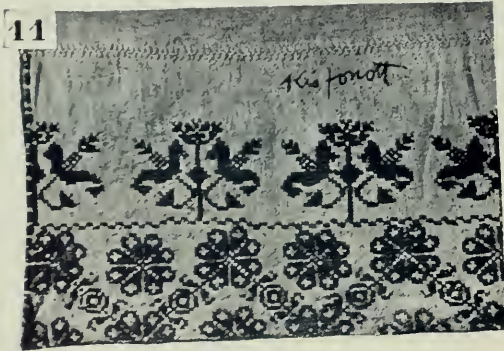 11
Kis fonott